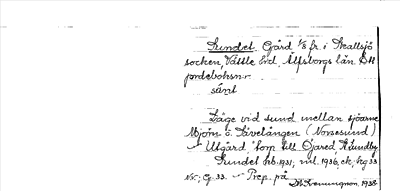 Sundet Gård 1/8 fr. i Skallsjö
socken, Vättle hd. Älfsborgs län
jordeboksnr
sünt
Läge vid sund mellan sjöarne
Mjörn o. Sävelången (Norsesund)
Utgård, torp till Öjared
Sundet hb. 1931, ml. 1936, ek, hg 33
Nr: G. 33. – Prep. på
1938